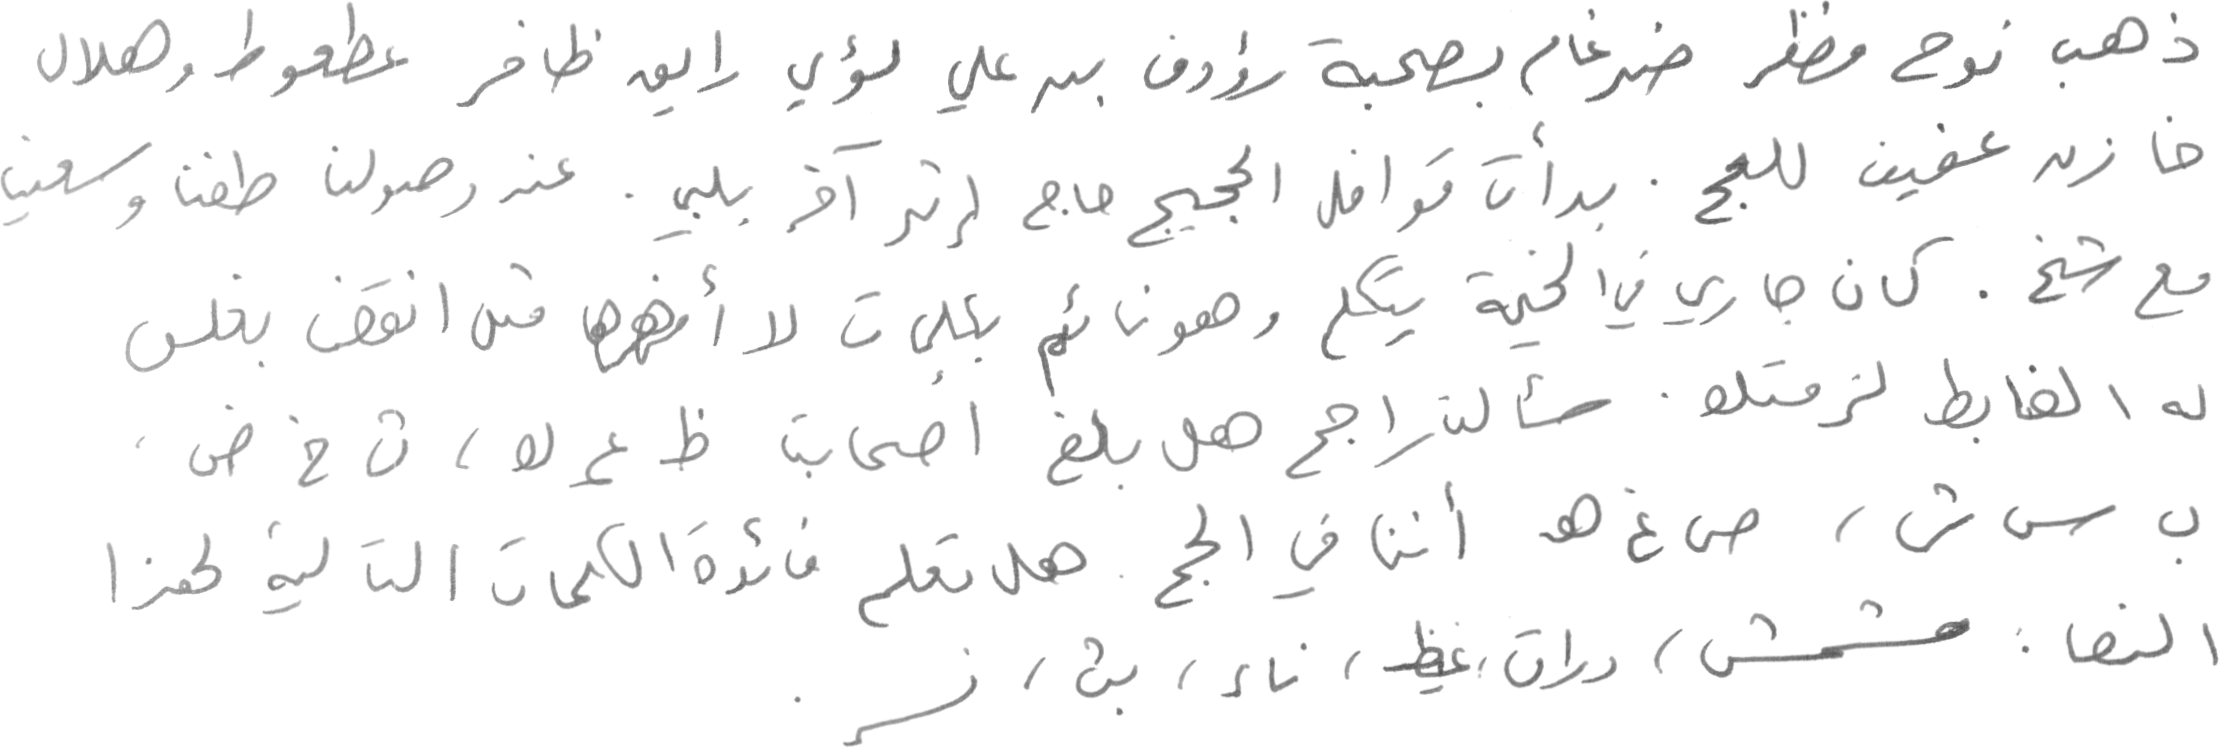 ذهب نوح مظفر ضرغام بصحبة رؤوف بن علي لؤي رايق ظافر عطعوط وهلال
خازن عفيف للحج. بدأت قوافل الحجيج حاج إثر آخر يلبي. عند وصولنا طفنا وسعينا
مع شيخ. كان جاري في الخيمة يتكلم وهو نائم بكلمات لا أفهمها مثل انقض بغلس
له الضابط لزمتك. سألت راجح هل بلغ أصحاب ظ ع لا، ث خ ض،
ب س ش، ص غ هـ أننا في الحج. هل تعلم فائدة الكلمات التالية لهذا
النص: مشمش، دراق، غيظ، ناء، بث، نر.